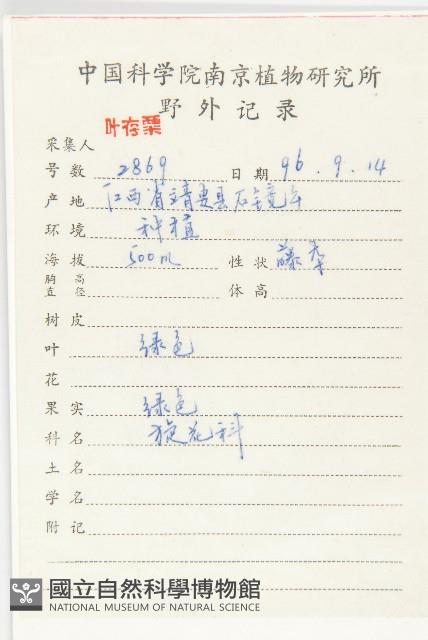 中国科学院南京植物研究所
野外记录
叶存粟
采集人
号数 2869 日期 96.9.14
产地 江西省靖安县石镜寺
环境 种植
海拔 500m 性状 藤本
胸高直径 体高
树皮
叶 绿色
花
果实 绿色
科名 旋花科
土名
学名
附记
國立自然科學博物館
NATIONAL MUSEUM OF NATURAL SCIENCE